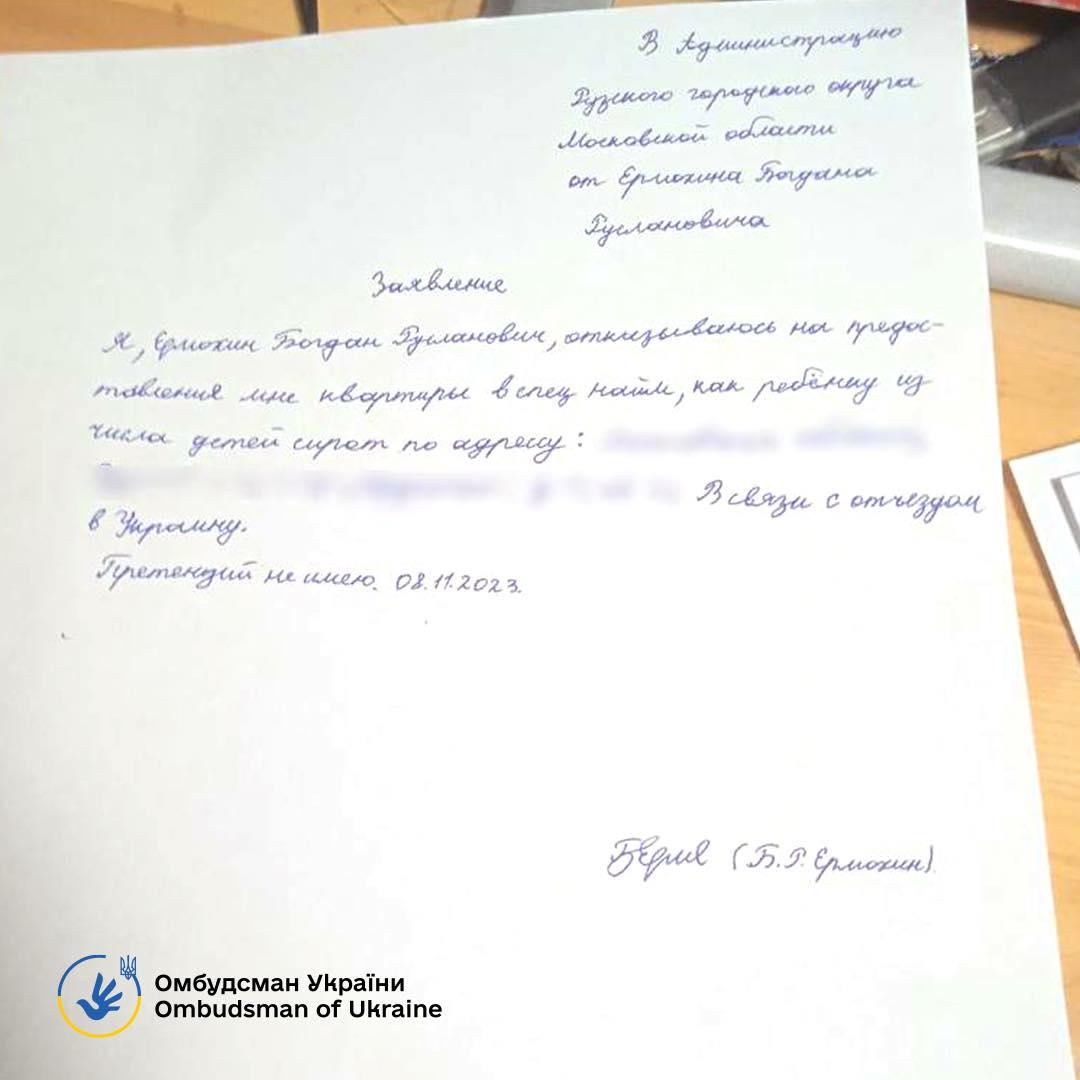 В Администрацию
Рузского городского округа
Московской области
от Ермохина Богдана
Руслановича
Заявление
Я, Ермохин Богдан Русланович, отказываюсь на предос-
тавления мне квартиры в спец найм, как ребёнку из
числа детей сирот по адрессу:
В связи с отъездом
в Украину.
Претензий не имею. 08.11.2023.
(Б.Р. Ермохин)
Омбудсман України
Ombudsman of Ukraine